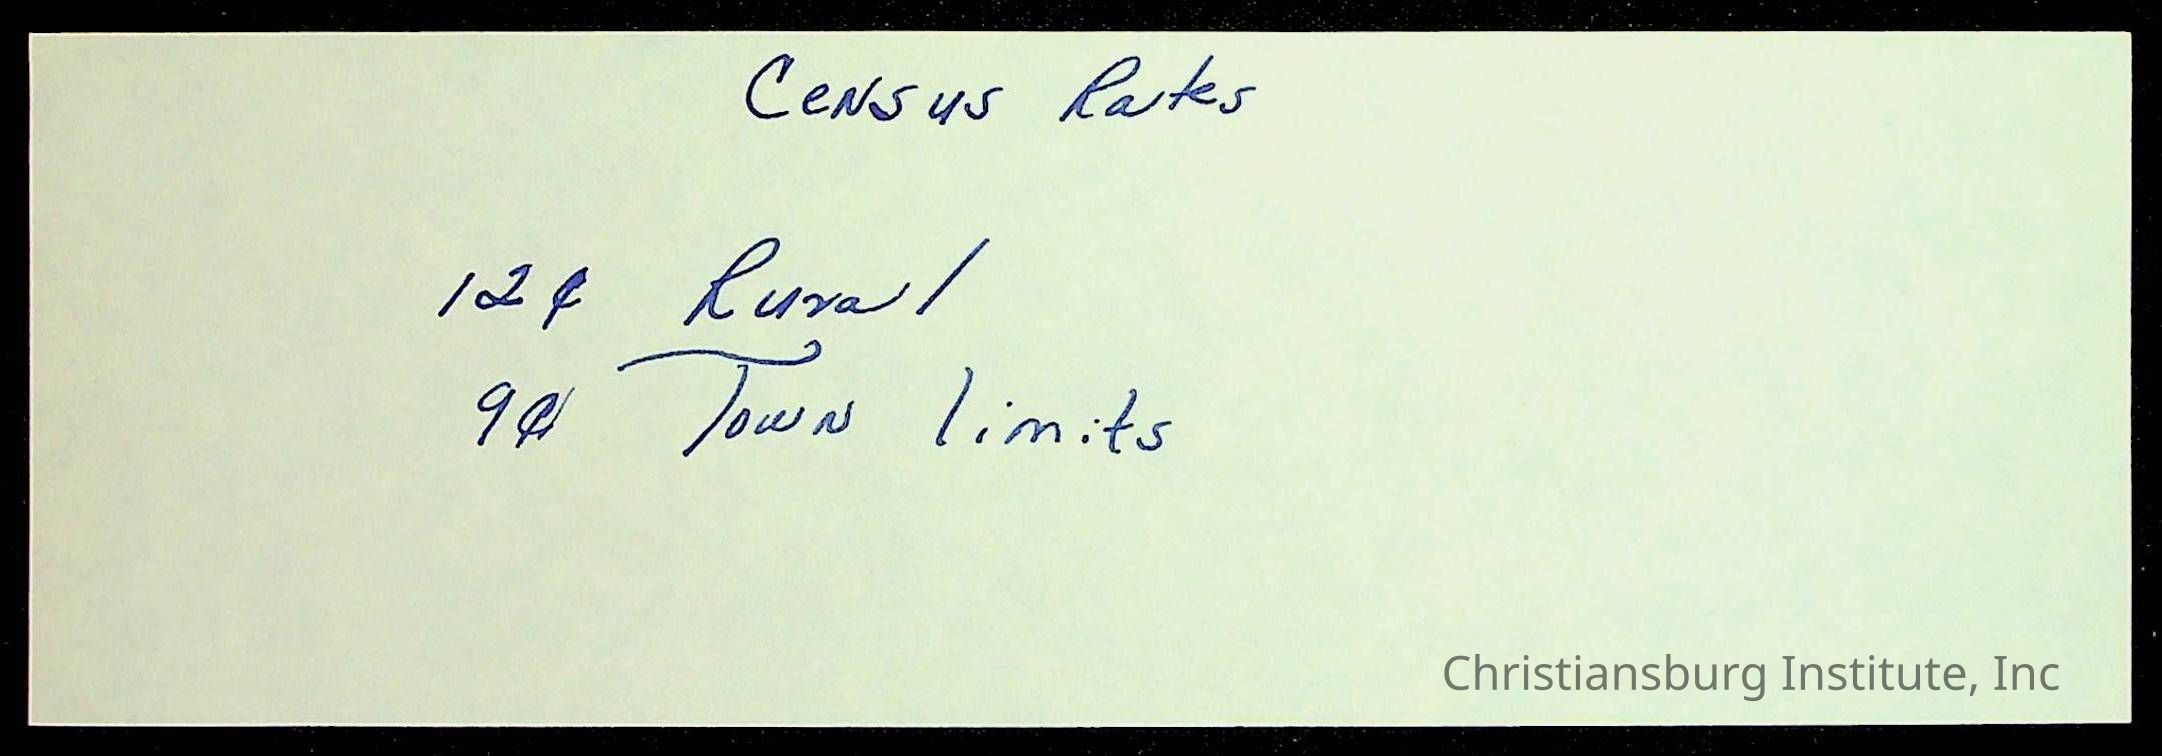 Census Rates
12¢ Rural
9¢ Town limits
Christiansburg Institute, Inc